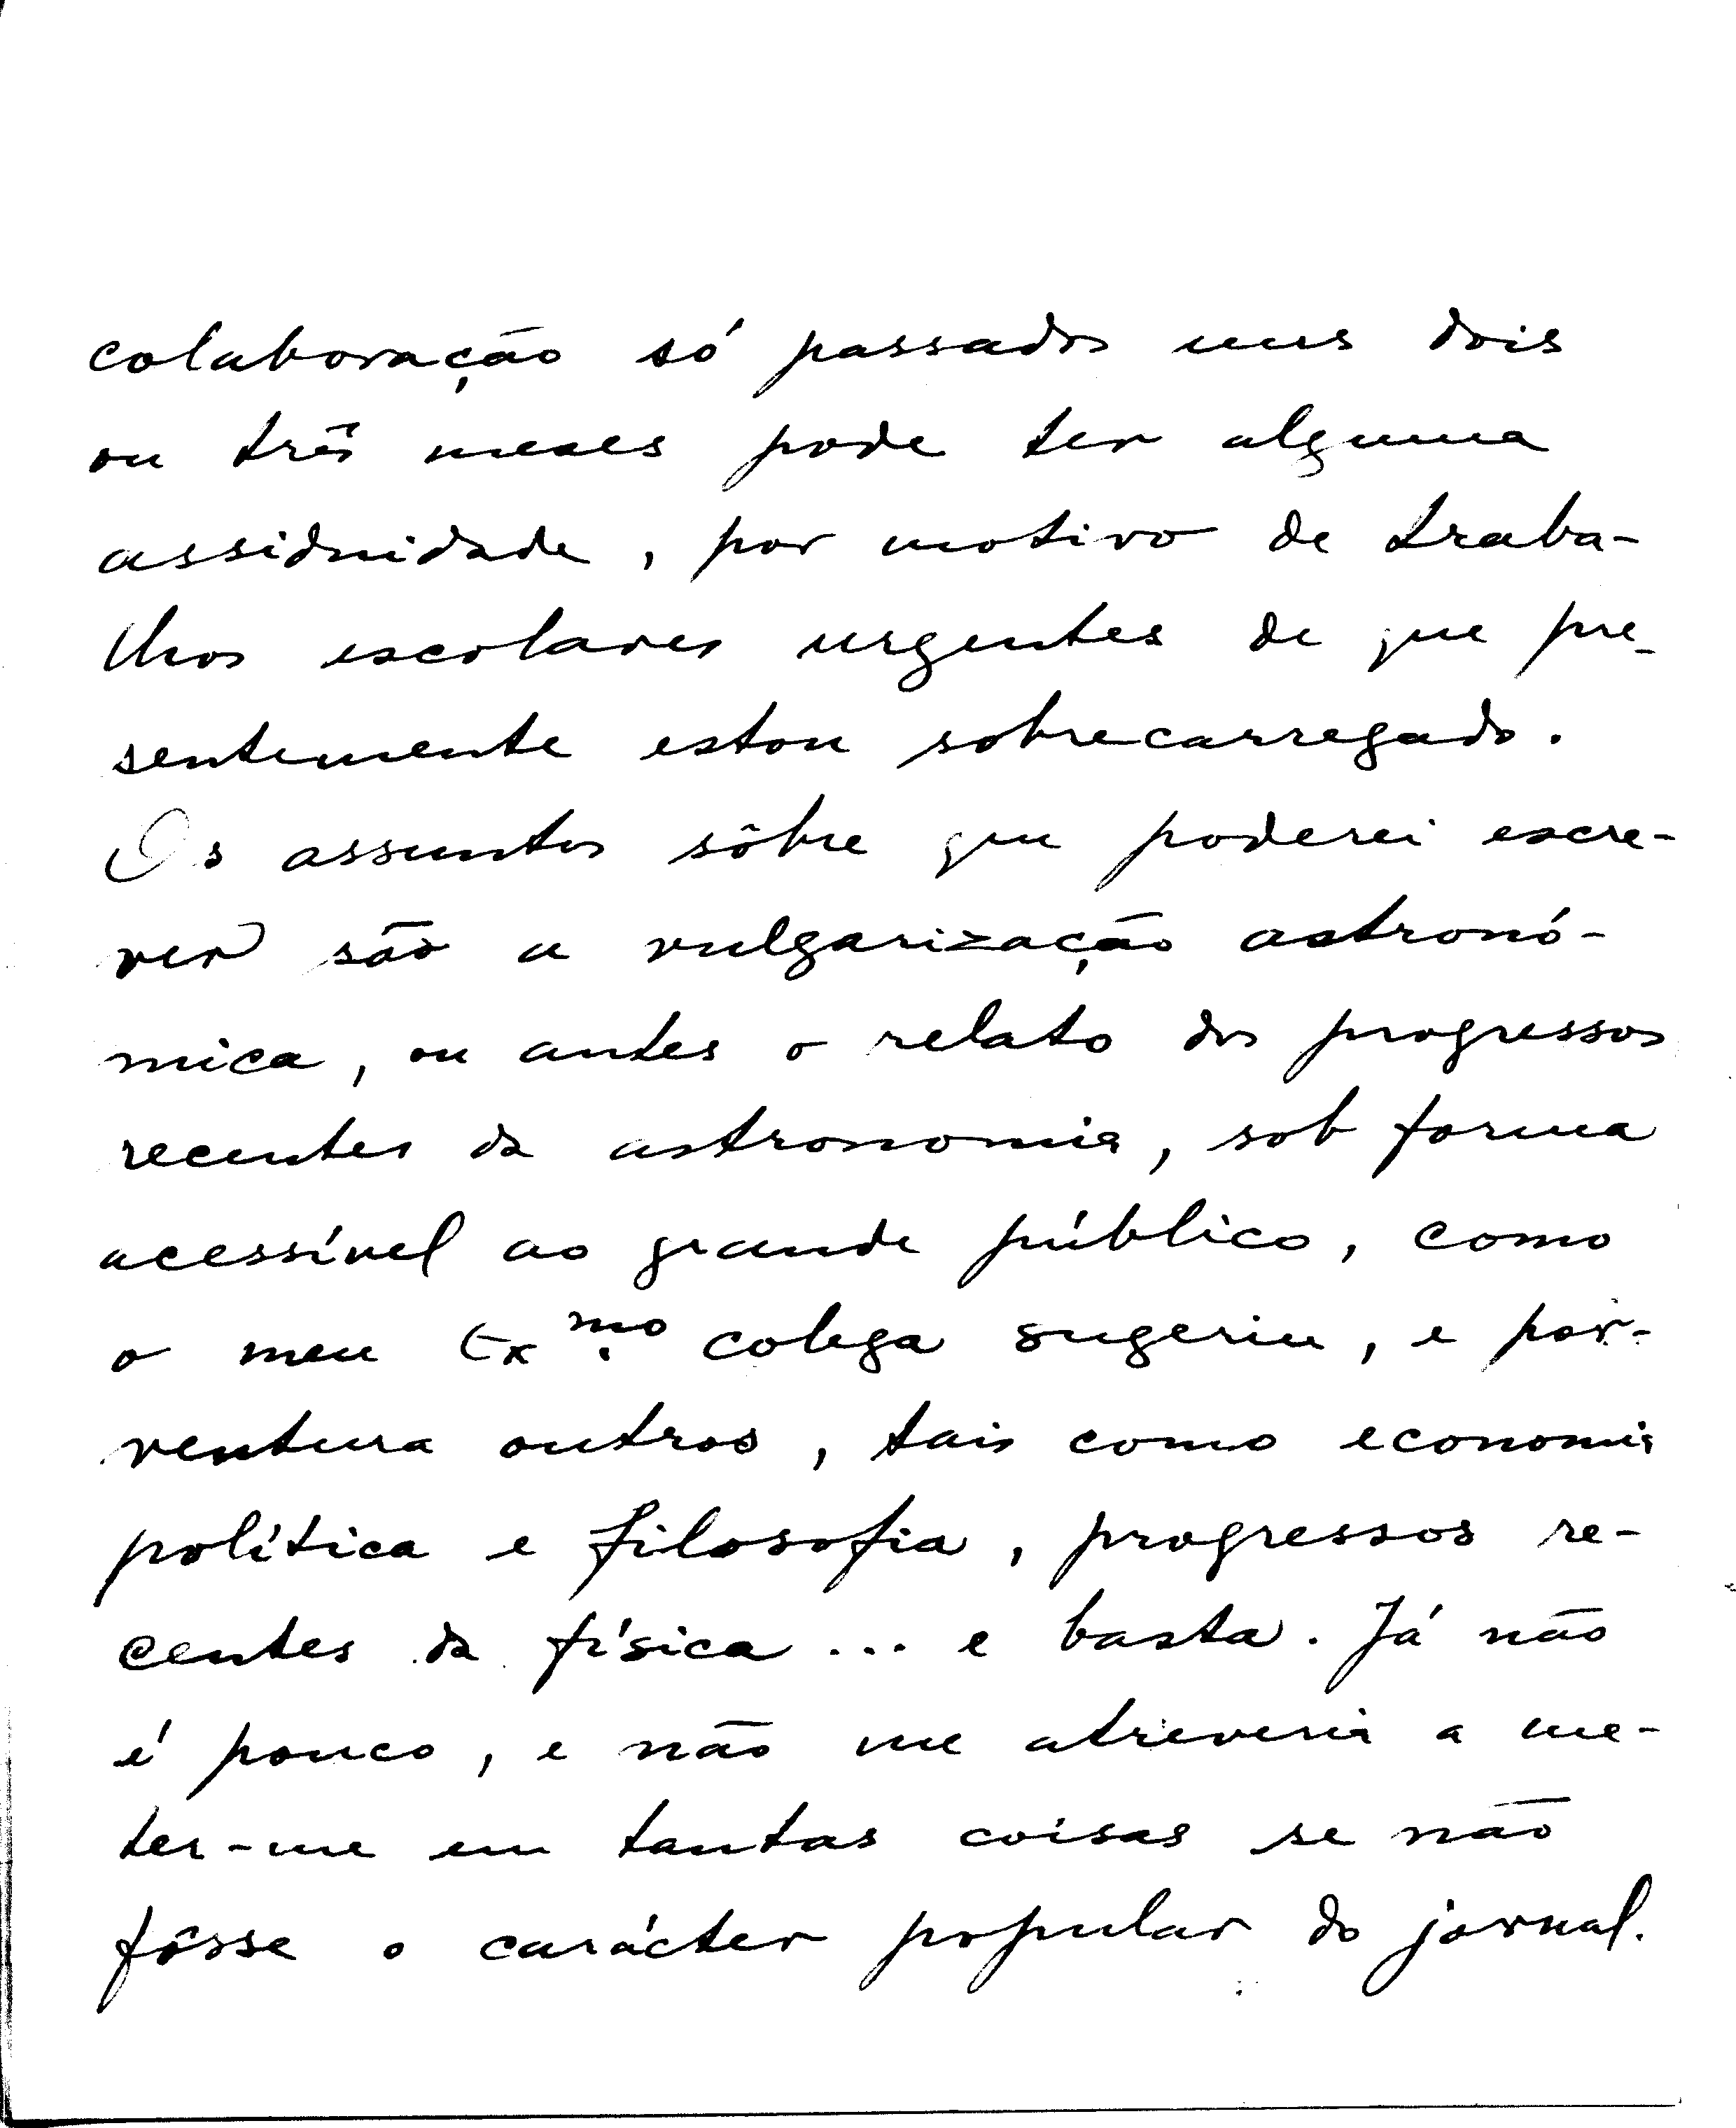 colaboração só passados uns dois
ou três meses pode ter alguma
assiduidade, por motivo de traba-
lhos escolares urgentes de que pre-
sentemente estou sobrecarregado.
Os assuntos sôbre que poderei escre-
ver são a vulgarização astronó-
mica, ou antes o relato dos progressos
recentes da astronomia, sob forma
acessível ao grande público, como
o meu Ex.mo colega sugeriu, e por-
ventura outros, tais como economia
política e filosofia, progressos re-
centes da física... e basta. Já não
é pouco, e não me atreveria a me-
ter-me em tantas coisas se não
fôsse o carácter popular do jornal.